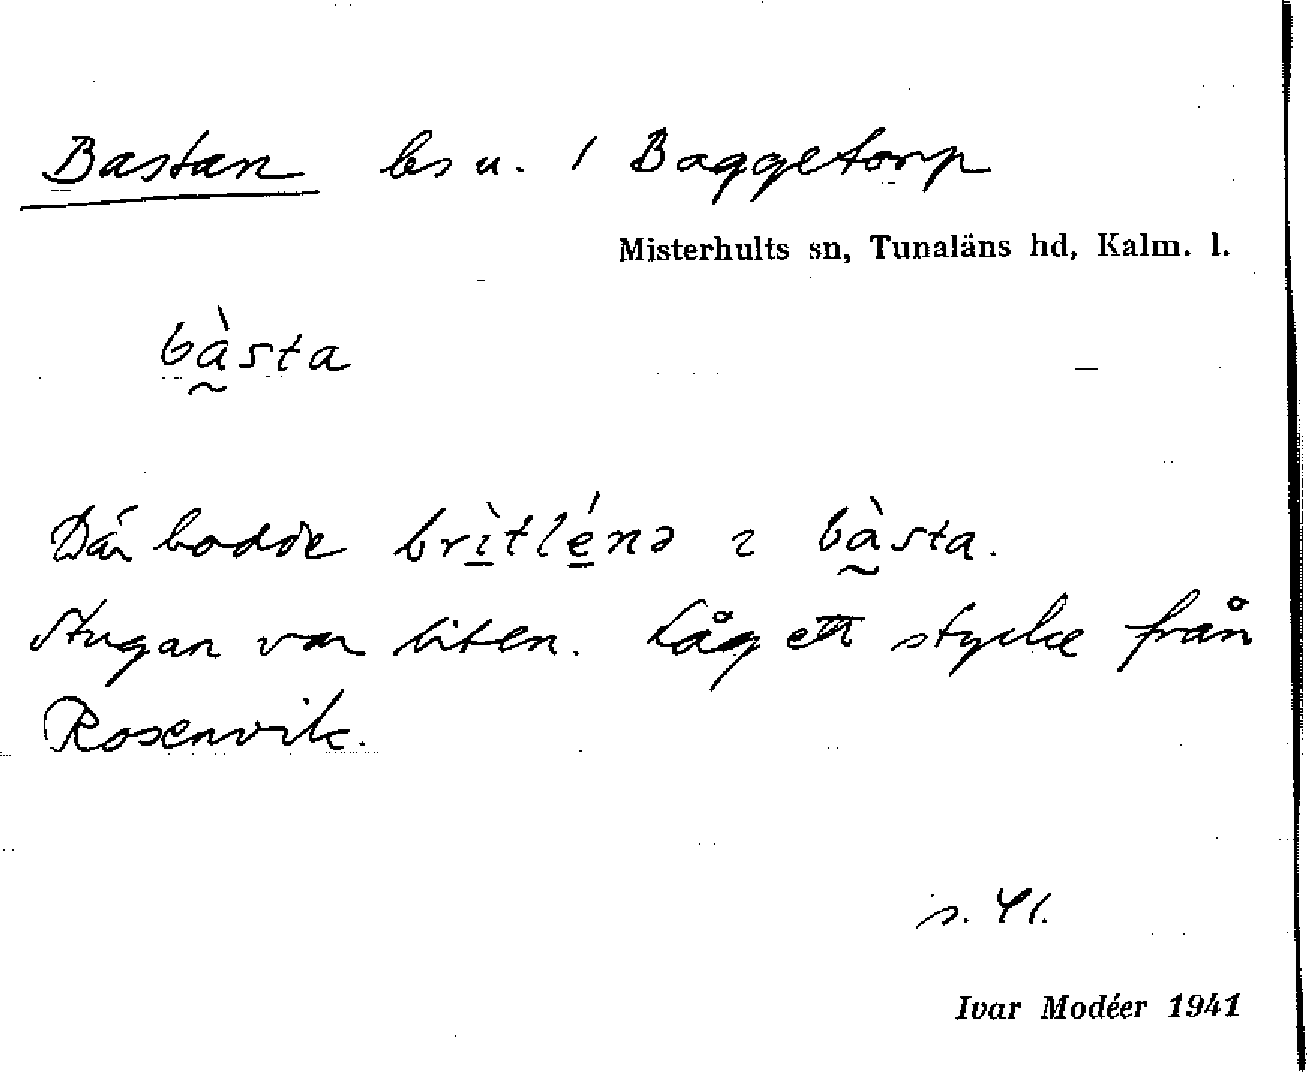 Bastan bs u. / Baggetorp
Misterhults sn, Tunaläns hd, Kalm. l.
bà̰sta
Där bodde brì̱tlé̱nə ɩ bà̰sta.
Stugan var liten. Låg ett stycke från
Rosenvik.
s. 41.
Ivar Modéer 1941